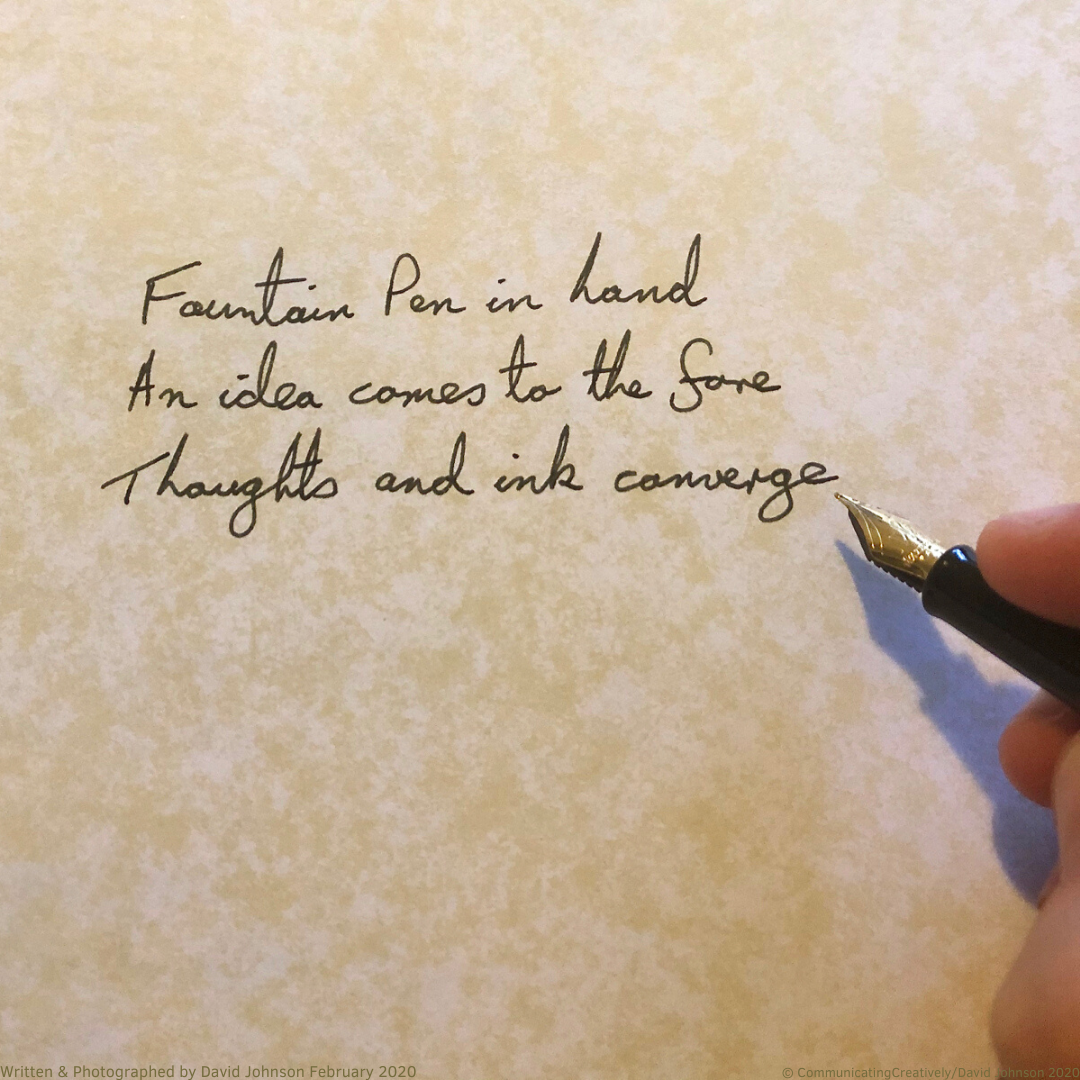 Fountain Pen in hand
An idea comes to the fore
Thoughts and ink converge
Written & Photographed by David Johnson February 2020
© CommunicatingCreatively/David Johnson 2020